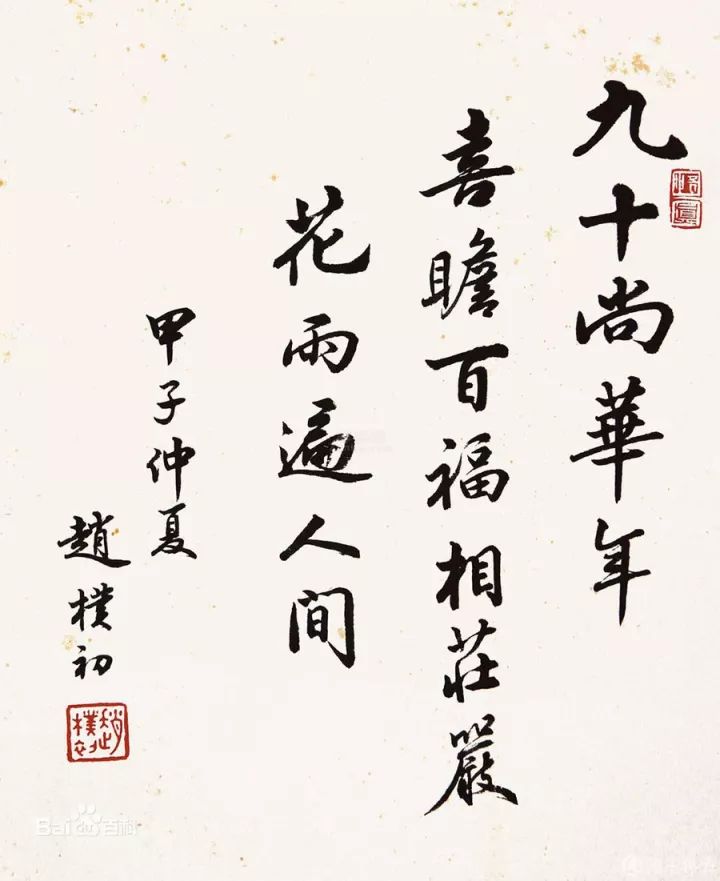 九十尚華年
喜瞻百福相莊嚴
花雨遍人间
甲子仲夏
趙樸初
趙樸初
Bai百科